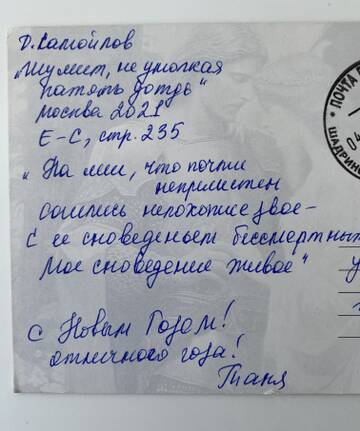 Д. Самойлов
„Шумит, не умолкая
память дождь“
Москва 2021
Е-С, стр. 235
„На миг, что почти
неприметен
Сошлись непохожие двое –
С ее сновиденьем бессмертным
Мое сновидение живое“
С Новым Годом!
отличного года!
Таня
ПОЧТА
04
ШАДРИНС